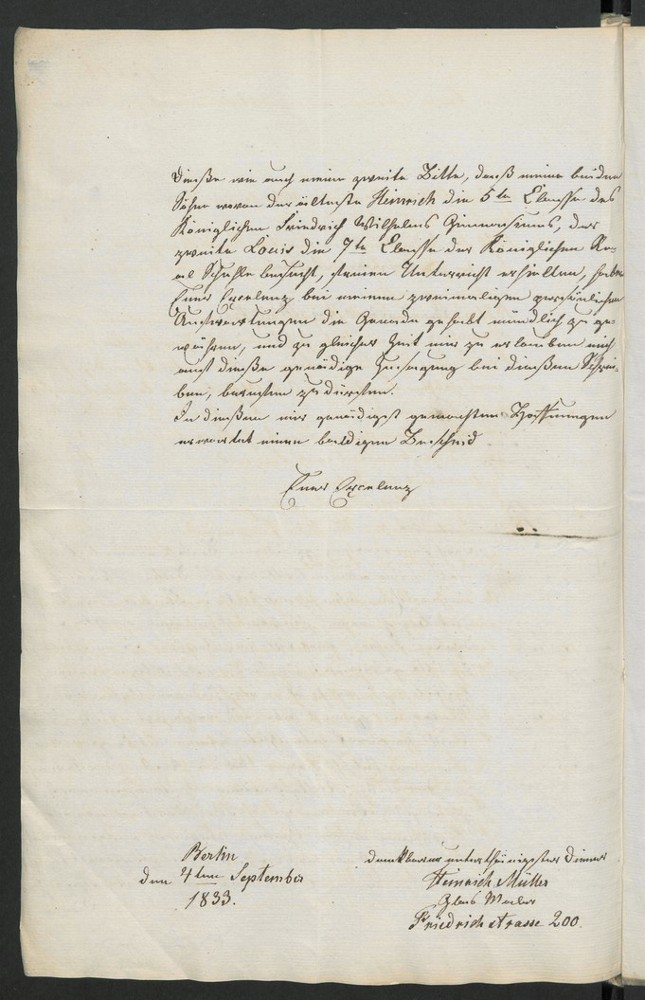 Dieße wie auch meine zweite Bitte, daß meine beiden
Söhne wovon der älteste Heinrich die 5te Classe des
Königlichen Friedrich Wilhelms Gimnasiums, der
zweite Louis die 7te Classe der Königlichen Re-
al Schuhle besucht, freien Unterricht erhielten, haben
Euer Excelenz bei meinen zweimaligen persönlichen
Aufwartungen die Gnade gehabt mündlich zu ge-
währen, und zu gleicher Zeit mir zu erlauben mich
auf dieße gnädige Zusagung bei dießem Schrei-
ben, berufen zu dürfen.
In dießen mir gnädigst gemachten Hoffnungen
erwartet einen baldigen Bescheid
Euer Excelenz
Berlin
den 4ten September
1833.
dankbarer unterthänigster Diener
Heinrich Müller
Glas Maler
Friedrichstrasse 200.